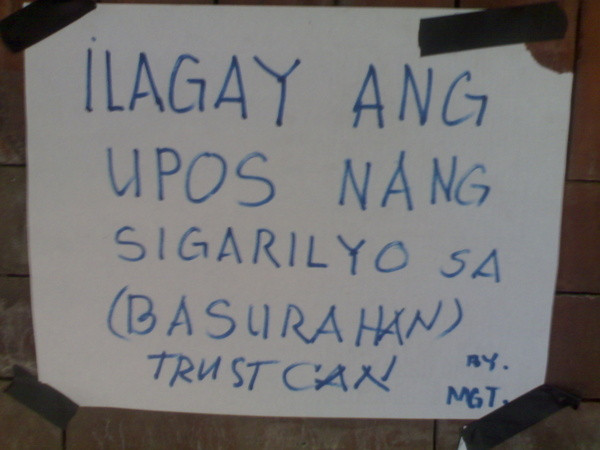 İLAGAY ANG
UPOS NANG
SIGARILYO SA
(BASURAHAN)
TRUST CAN
BY.
MGT.